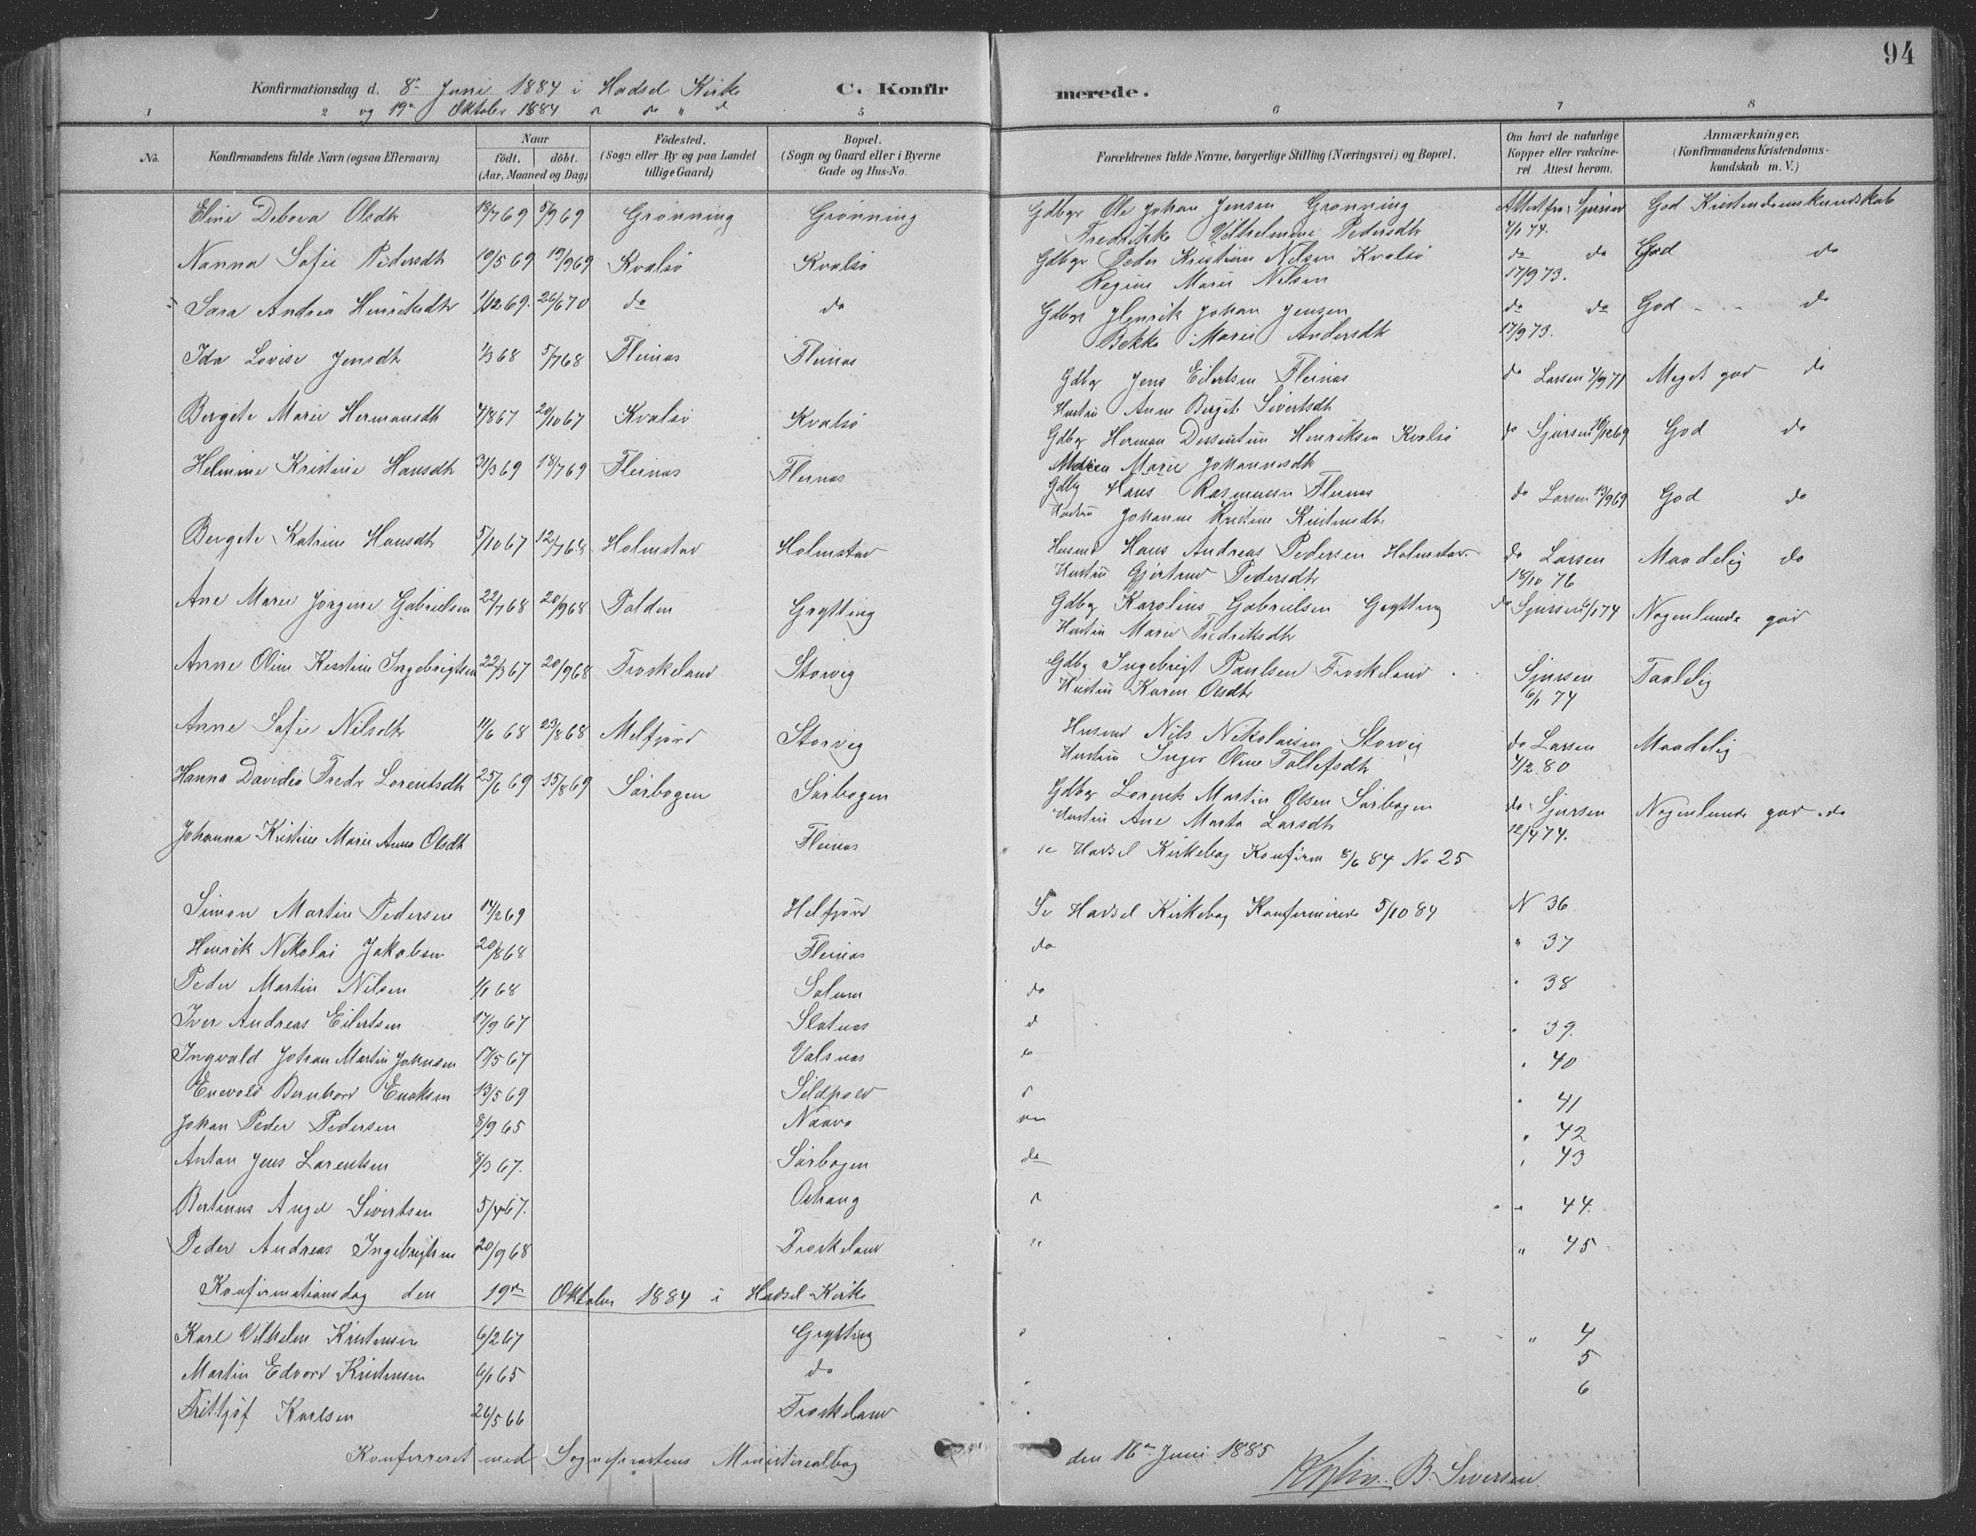 94
Konfirmationsdag d. 8de Juni 1884 i Hadsel Kirke C. Konfirmerede.
og 19de Oktober 1884
1 2 5 6 7 8
No. Konfirmandens fulde Navn (ogsaa Efternavn) Naar født, døbt. (Aar, Maaned og Dag) Fødested. (Sogn eller By og paa Landet tillige Gaard) Bopæl. (Sogn og Gaard eller i Byerne Gade og Hus-No. Forældrenes fulde Navne, borgerlige Stilling (Næringsvei) og Bopæl. Om havt de naturlige Kopper eller vakcineret Attest herom. Anmærkninger. (Konfirmandens Kristendomskundskab m. V.)
Eline Debora Olsdtr 18/7 69 5/9 69 Grønning Grønning Gdbgr Ole Johan Jensen Grønning Attest fra Sjursen God Kristendomskundskab
Fredrikke Vilhelmine Pedersdtr 7/1 74.
Nanna Sofie Pedersdtr 10/5 69 19/9 69 Kvalsø Kvalsø Gdbgr Peder Kristian Nilsen Kvalsø do do God do
Regine Marie Nilsen 17/9 73.
Sara Andrea Henriksdtr 1/12 69. 26/6 70 do do Gdbgr Henrik Johan Jensen do do God do
Bekka Marie Andersdtr 17/9 73.
Ida Lovise Jensdtr 1/3 68 5/7 68 Fleinas Fleinas Gdbgr Jens Eilertsen Fleinas do Larsen 4/9 71 Meget god do
Hustru Anne Berget Sivertsdtr
Bergete Marie Hermansdtr 4/8 67 20/10 67 Kvalsø Kvalsø Gdbgr Herman Henriksen Kvalsø do Sjursen 69 God do
Marie Johannesdtr
Helmine Kristine Hansdtr 31/3 69 18/7 69 Fleinas Fleinas Gdbg Hans Rasmussen Fleinas do Larsen 19/9 69 God do
Hustru Johanne Kristine Kristensdtr
Bergete Katrine Hansdtr 5/10 67 12/7 68 Holmstad Holmstad Husmd Hans Andreas Pedersen Holmstad do Larsen Maadelig do
Hustru Gjertrud Pedersdtr 18/10 76
Ane Marie Jørgine Gabrielsen 22/7 68 20/9 68 Polden Grytting Gdbgr Karolius Gabrielsen Grytting do Sjursen 74 Nogenlunde god
Hustru Marie Fredriksdtr
Anne Oline Kirstine Ingebrigtsen 22/3 67 20/9 68 Froskeland Storvig Gdbg Ingebrigt Paulsen Froskeland Sjursen Taalelig
Hustru Karen Olsdtr 6/1 74
Anne Sofie Nilsdtr 11/6 68 23/8 68 Melfjord Storvig Husmd Nils Nikolaisen Storvig do Larsen Maadelig
Hustru Inger Oline Tollefsdtr 4/2 80
Hanna Davidea Fredr Lorentsdtr 25/6 69 15/8 69 Sørbogen Sørbogen Gdbgr Lorents Martin Olsen Sørbogen do Sjursen Nogenlunde god do
Hustru Ane Marta Larsdtr 12/4 74.
Johanna Kristine Marie Anna Olsdtr Fleinas se Hadsel Kirkebog Konfirm 8/6 84 No 25
Simon Martin Pedersen 14/2 69 Melfjord Se Hadsel Kirkebog Konfirmerede 5/10 84 N 36
Henrik Nikolai Jakobsen 20/8 68 Fleinas do " 37
Peder Martin Nilsen 1/1 68 do " 38
Iver Andreas Eilertsen 17/9 67 Slotnas d " 39.
Ingvald Johan Martin Johnsen 17/5 67 Valsnas " 40
Enevold Bernhard Enoksen 13/5 69 Sildpold " 41
Johan Peder Pedersen 8/9 65 " 42
Anton Jens Lorentsen 8/3 67. Sørbogen do " 43
Bertinus Angel Sivertsen 5/4 67. " 44.
Peder Andreas Ingebrigtsen 20/9 68 Froskeland " " 45
Konfirmationsdag den 19de Oktober 1884 i Hadsel Kirke
Karl Vilhelm Kristensen 6/2 67 Grytting " " 4
Martin Edvard Kristensen 6/1 65 do 5
Fritjof Karlsen 26/5 66 Froskeland 6
Konfereret med Sognepræstens Ministerialbog den 16de Juni 1885
B. Sivertsen